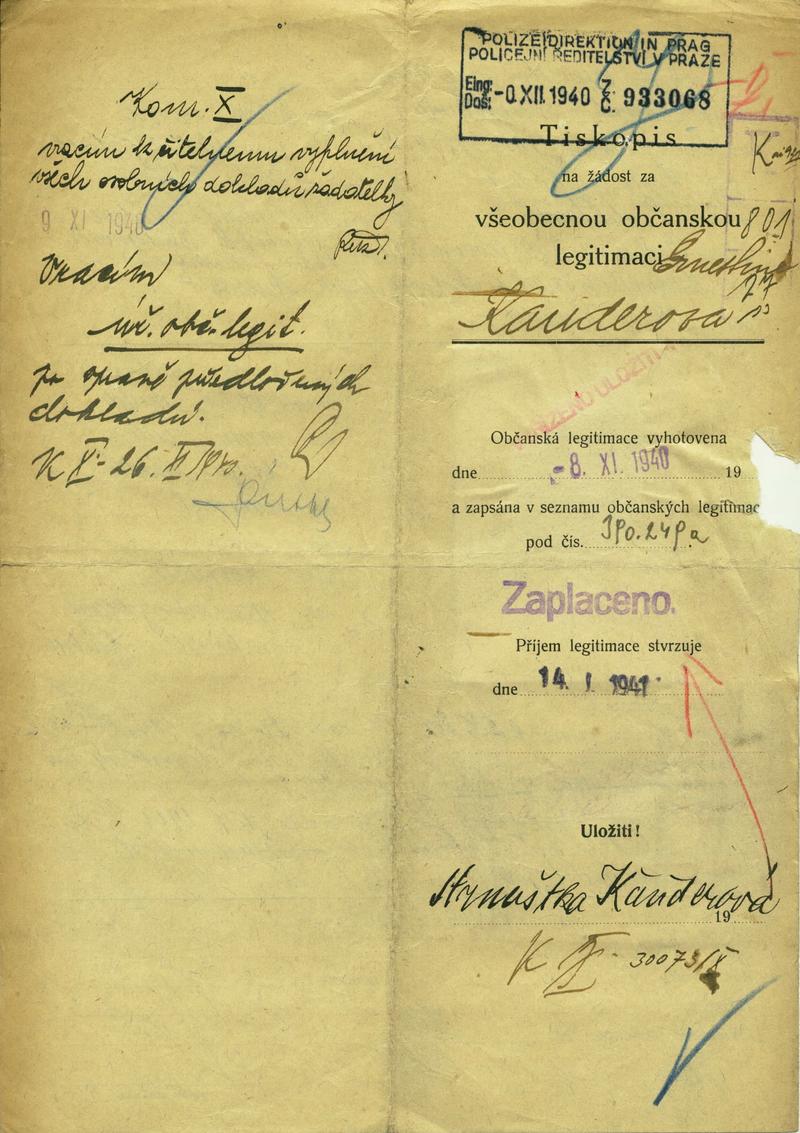 Kom. X
vracím k čitelnému vyplnění
všech osobních dokladů žadatelky
9 XI 1940
Vracím
úř. obč. legit.
po opravě předložených
dokladů.
K X - 26. XI 1940.
POLIZEIDIREKTION IN PRAG
POLICEJNÍ ŘEDITELSTVÍ V PRAZE
Eing:
Doš: XII. 1940 Z. Č. 933068
Tiskopis
na žádost za
všeobecnou občanskou 801
legitimaci Ernestina
77
Kanderová
Občanská legitimace vyhotovena
dne -8. XI. 1940 19
a zapsána v seznamu občanských legitimac
pod čís.
Zaplaceno.
Příjem legitimace stvrzuje
dne 14. I. 1941
Uložiti!
Arnoštka Kanderová
19